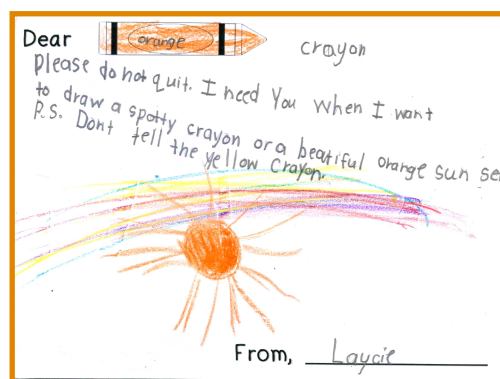 Dear orange crayon
please do not quit. I need You when I want
to draw a spotty crayon or a beatiful orange sun set
P.S. Dont tell the yellow crayon.
From, Laycie